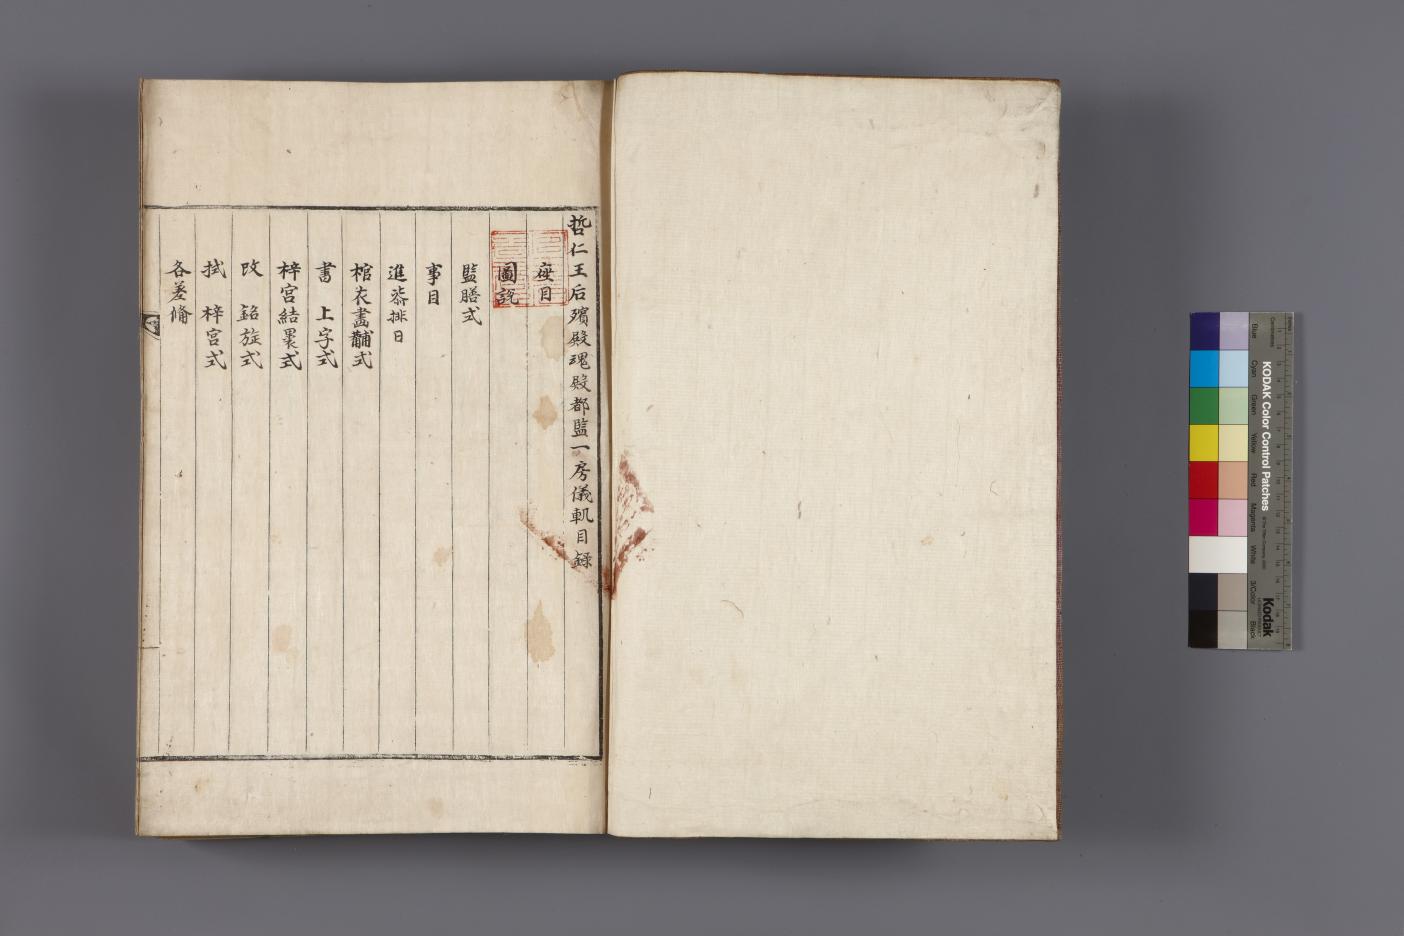 哲仁王后殯殿魂殿都監一房儀軌目録
座目
圖説
監膳式
事目
進排日
棺衣畫黼式
書 上字式
梓宮結裹式
改 銘旌式
拭 梓宮式
各差備
Blue
Cyan
Green
Yellow
Red
Magenta
White
3/Color
Black
KODAK Color Control Patches
Kodak